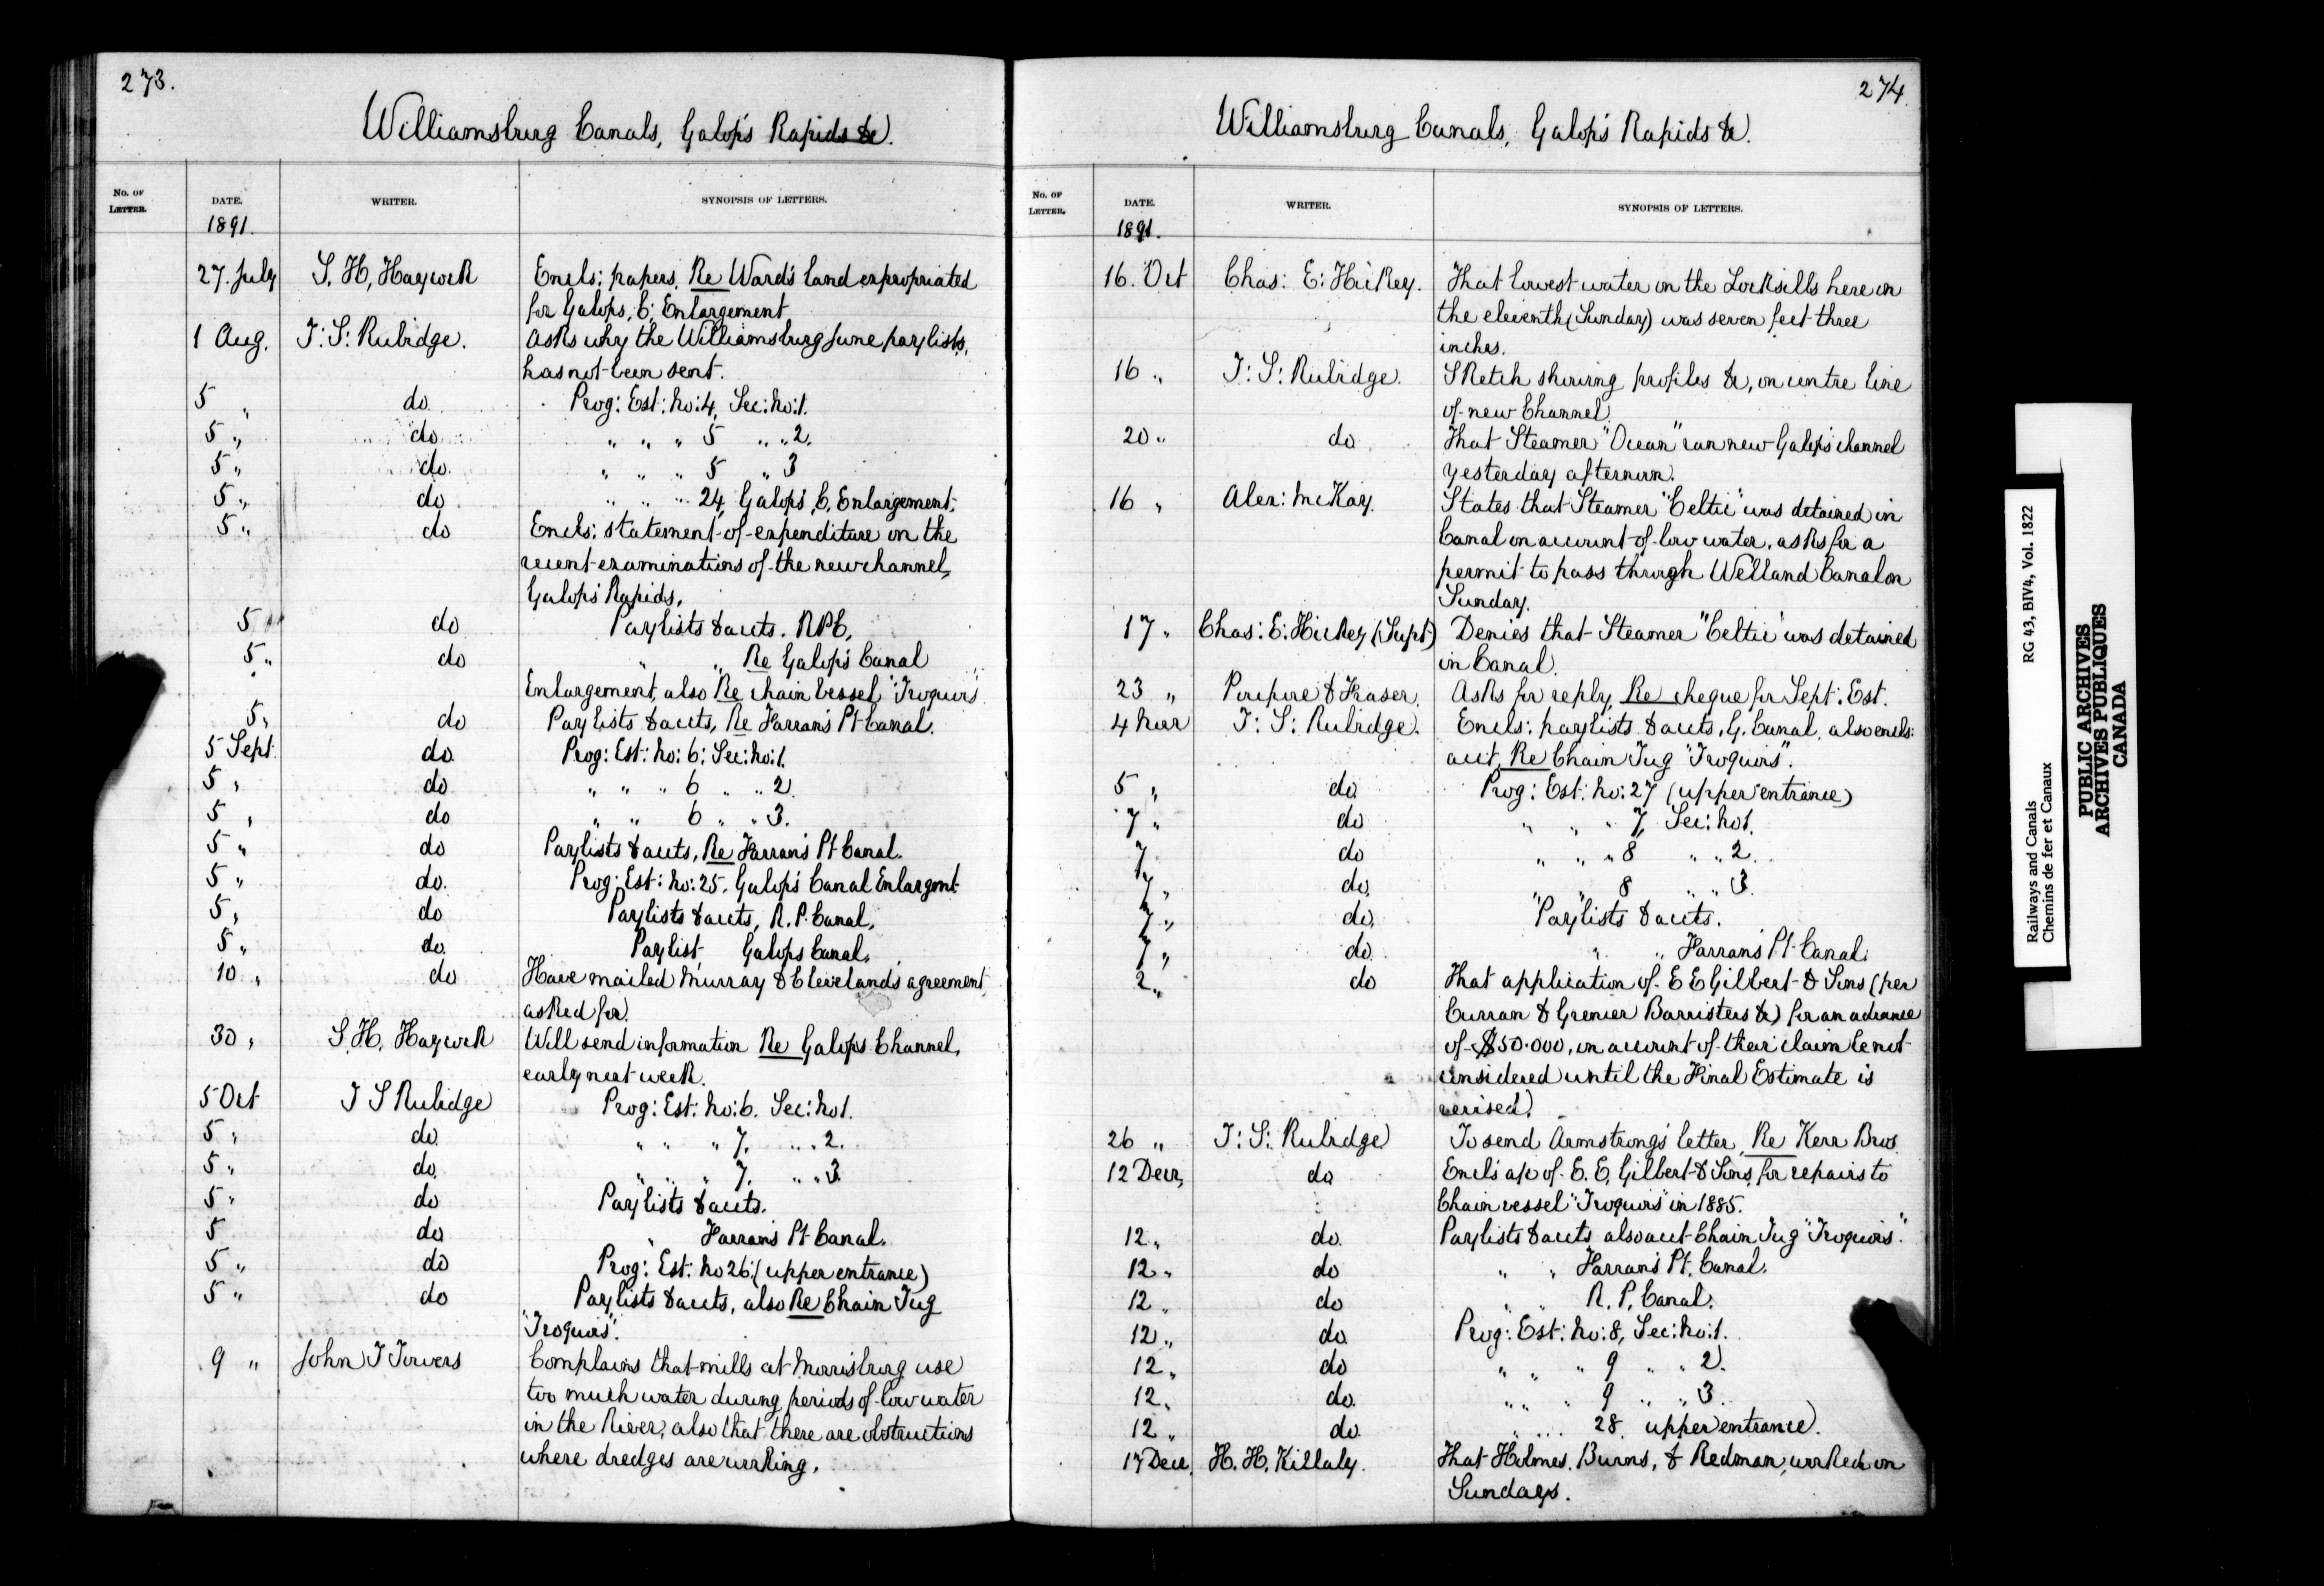 273.
Williamsburg Canals, Galops Rapids &c.
No. OF LETTER. DATE. WRITER. SYNOPSIS OF LETTERS.
1891.
27. July S. H. Haycock Encls: papers, Re Ward's land expropriated
for Galops, C; Enlargement.
1 Aug. T: S: Rubidge. Asks why the Williamsburg June paylists,
has not been sent.
5 " do. Prog: Est: No: 4, Sec: No: 1.
5 " do " " " 5 " " 2.
5 " do. " " " 5 " 3
5 " do " " " 24, Galops, C, Enlargement.
5 " do Encls: statement of expenditure on the
recent examinations of the new channel,
Galops Rapids.
5 " do Paylists & accts. RPC.
5 " do " " Re Galops Canal
Enlargement, also Re chain vessel "Iroquois"
5 " do Paylists & accts, Re Farran's Pt Canal.
5 Sept. do. Prog: Est: No: 6: Sec: No: 1.
5 " do " " " 6 " " 2.
5 " do " " 6 " " 3.
5 " do Paylists & accts, Re Farran's Pt Canal.
5 " do. Prog: Est: No: 25, Galops Canal Enlargmt
5 " do Paylists & accts, R. P. Canal,
5 " do. Paylist, Galops Canal.
10 " do Have mailed Murray & Cleveland's agreement,
asked for.
30 " S. H. Haycock Will send information Re Galops Channel,
early next week.
5 Oct T S Rubidge Prog: Est: No: 6. Sec: No 1.
5 " do. " " " 7. " " 2.
5 " do. " " " 7. " " 3.
5 " do Paylists & accts.
5 do " Farran's Pt Canal.
5 " do Prog: Est. No 26: (upper entrance)
5 " do Paylists & accts, also Re Chain Tug
"Iroquois".
9 " John T Towers Complains that mills at Morrisburg use
too much water during periods of low water
in the River, also that there are obstructions
where dredges are working.
274.
Williamsburg Canals, Galops Rapids &c.
No. OF LETTER. DATE. WRITER. SYNOPSIS OF LETTERS.
1891.
16. Oct Chas: E: Hickey. That lowest water on the Locksills here on
the eleventh (Sunday) was seven feet three
inches.
16 " T: S: Rubidge. Sketch showing profiles &c, on centre line
of new Channel.
20 " do That Steamer "Ocean" ran new Galops channel
yesterday afternoon.
16 " Alex: McKay. States that Steamer "Celtic" was detained in
Canal on account of low water, asks for a
permit to pass through Welland Canal on
Sunday.
17 " Chas: E: Hickey (Supt) Denies that Steamer "Celtic" was detained
in Canal.
23 " Poupore & Fraser. Asks for reply, Re cheque for Sept: Est.
4 Nov T: S: Rubidge. Encls: paylists & accts, G. Canal, also encls:
acct, Re Chain Tug "Iroquois".
5 " do. Prog: Est: No: 27 (upper entrance)
7 " do " " " 7, Sec: No 1.
7 do " " " 8 " " 2.
7 " do. " " 8 " " 3.
7 " do. Paylists & accts.
7 " do. " " Farran's Pt Canal.
2 " do That application of E E Gilbert & Sons (per
Curran & Grenier Barristers &c) for an advance
of $50.000, on account of their claim be not
considered until the Final Estimate is
revised.
26 " T: S: Rubidge To send Armstrong's letter, Re Kerr Bros.
12 Decr, do Encls a/c of E. E. Gilbert & Sons, for repairs to
Chain vessel "Iroquois" in 1885.
12 " do. Paylists & accts, also acct Chain Tug "Iroquois".
12 " do " " Farran's Pt. Canal.
12 " do " " R. P. Canal.
12 " do. Prog: Est: No: 8, Sec: No: 1.
12 " do " " " 9 " " 2.
12 " do. " " " 9 " " 3.
12 " do. " " " 28 upper entrance).
17 Decr, H. H. Killaly. That Holmes, Burns, & Redman, worked on
Sundays.
Railways and Canals RG 43, BIV4, Vol. 1822
Chemins de fer et Canaux
PUBLIC ARCHIVES
ARCHIVES PUBLIQUES
CANADA